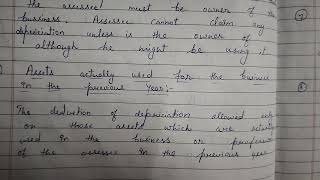 The assessee must be owner of the
business. Assessee cannot claim any
depriciation unless is the owner of
although he might be using it
Assets actually used for the business
in the previous year;-
The deduction of depriciation allowed only
on those assets which are actually
used in the business or profession
of the assessee in the previous year